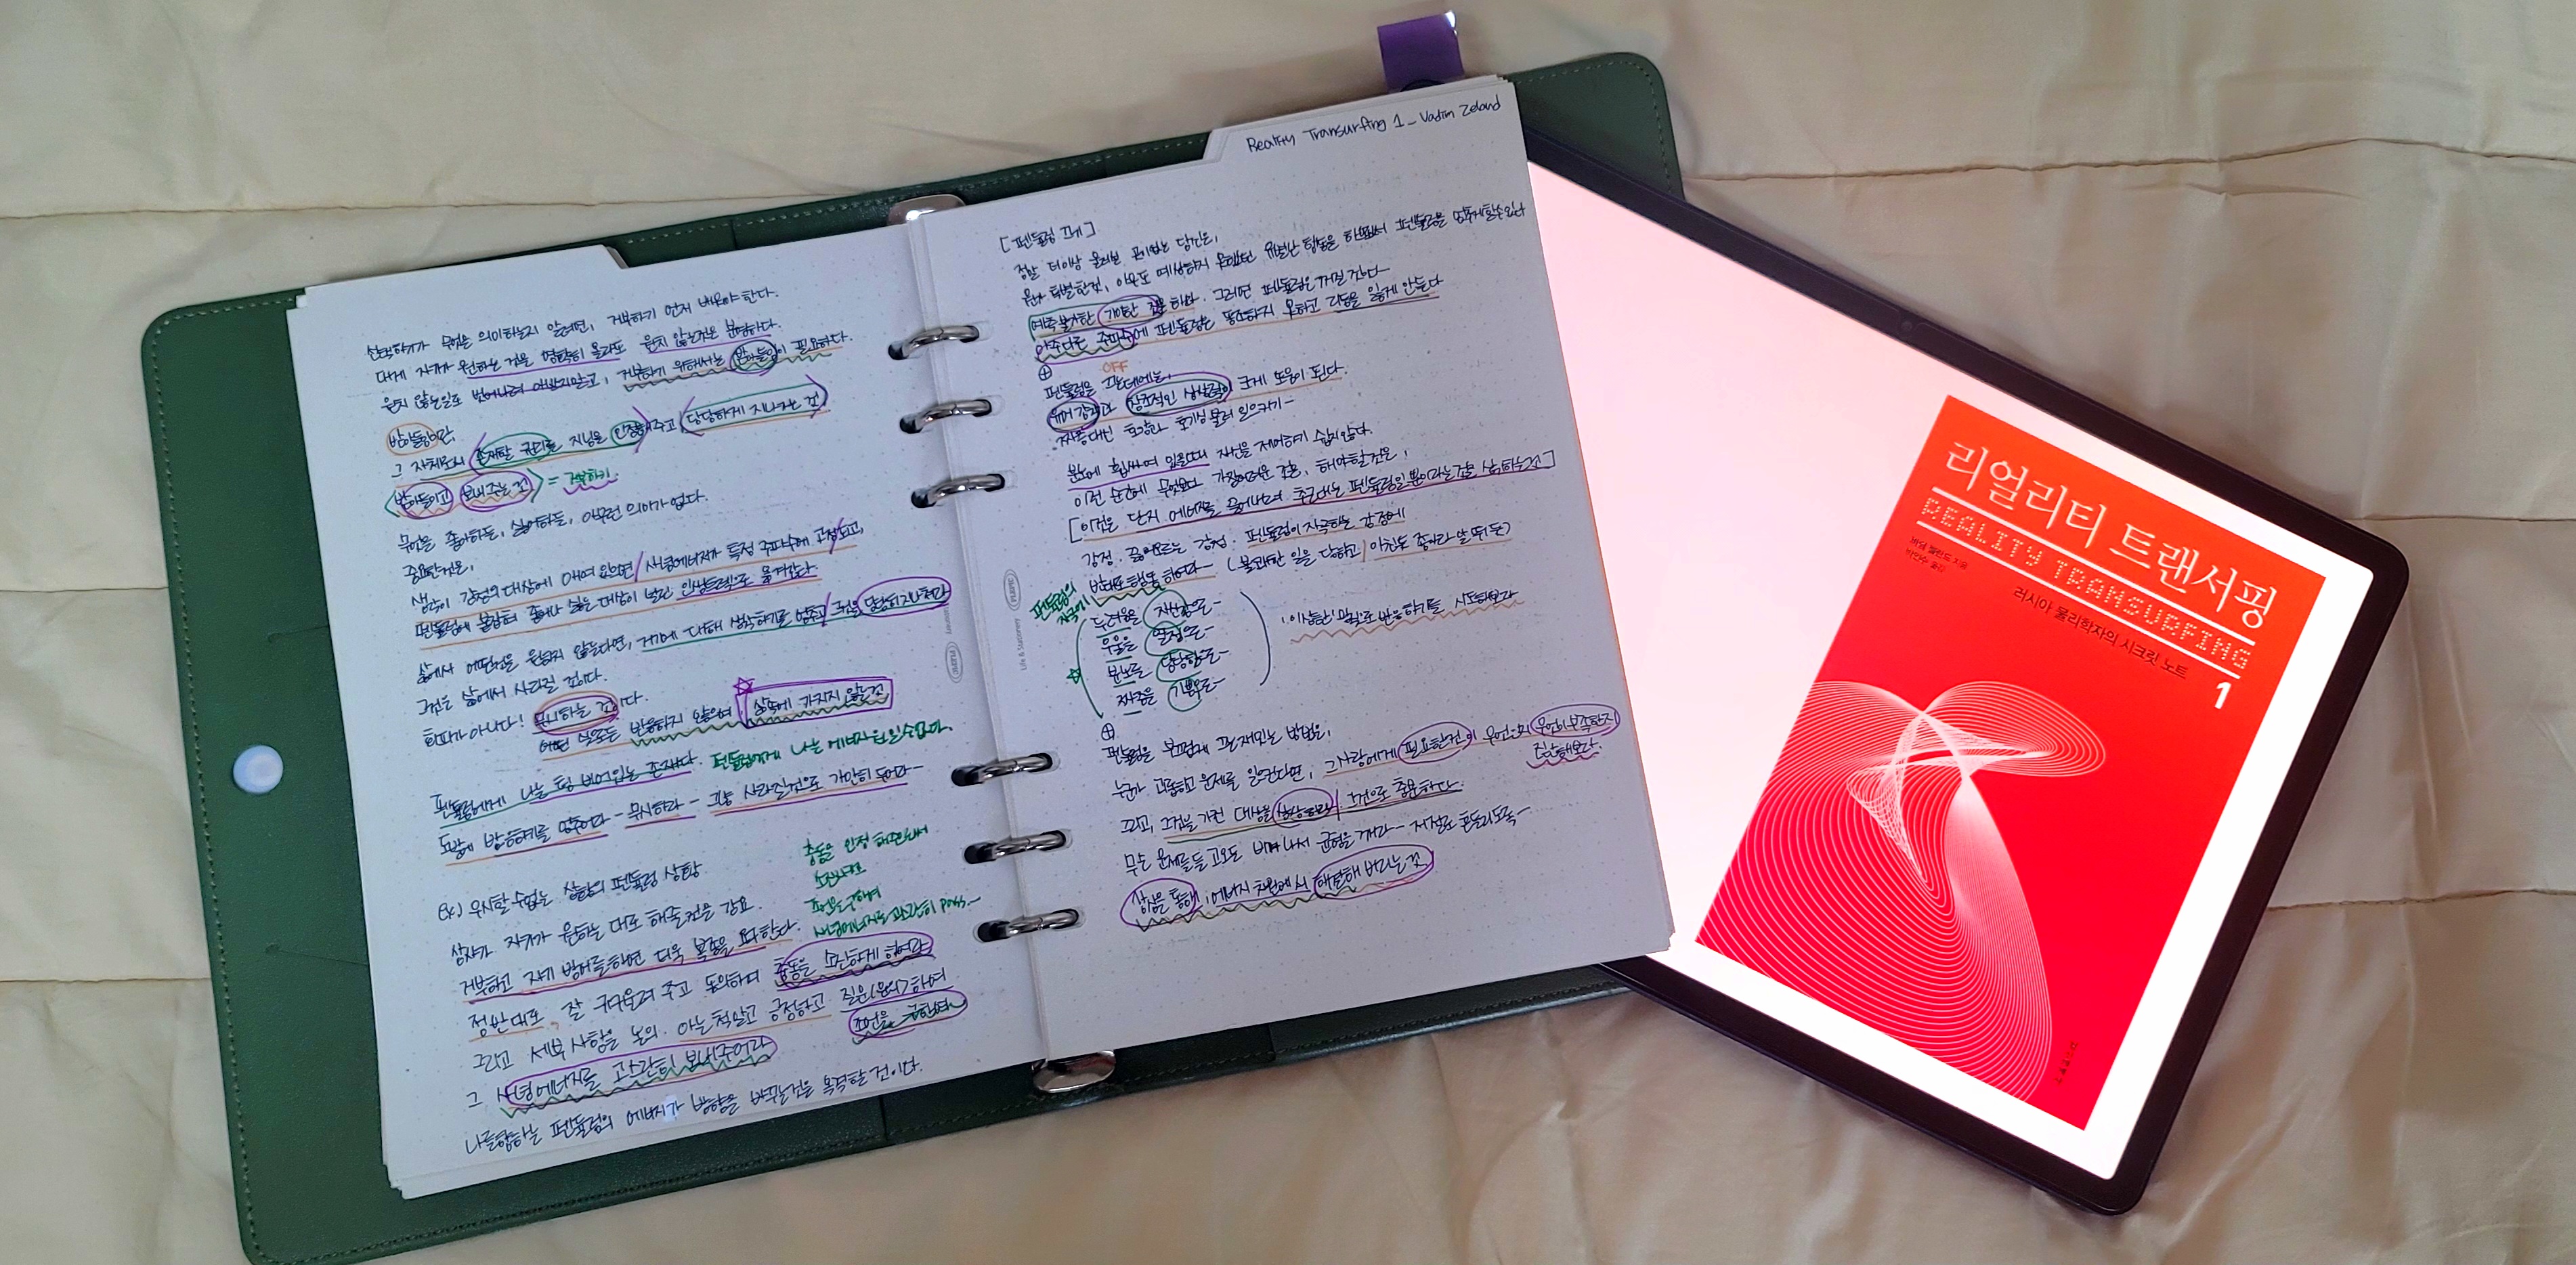 선택하기가 무엇을 의미하는지 알려면, 거부하기 먼저 배워야 한다.
대게 자기가 원하는 것을 명확히 몰라도 원치 않는것은 분명하다.
원치 않는일로 벗어나려 애쓰지말고, 거부하기 위해서는 받아들임이 필요하다.
받아들임이란,
그 자체로서 존재할 권리를 지님을 인정해주고 당당하게 지나가는 것
받아들이고 보내 주는 것 = 거부하기.
무엇을 좋아하든, 싫어하든, 아무런 의미가 없다.
중요한것은,
생각이 감정의 대상에 매여 있으면 사념에너지가 특정 주파수에 고정되고,
펜듈럼에 붙잡혀 좋아나 싫은 대상이 널린 인생트랙으로 옮겨간다.
삶에서 어떤것을 원하지 않는다면, 거기에 대해 생각하기를 멈추고 그것을 당당히 지나쳐라
그것은 삶에서 사라질 것이다.
회피가 아니다! 무시하는 것이다.
어떤 반응하지 않으며 삶속에 가지지 않는것
펜듈럼에게 나는 텅 비어있는 존재다. 펜듈럼에게 나는 에너지원일수없다.
도발에 반응하기를 멈추어라 - 무시하라 - 그냥 사라질것으로 가만히 두어라 -
충동을 인정 해줌으로써
소진시키고
조언을 구하며
사념에너지를 과잔히 pass. ~
Ex) 무시할 수없는 상황의 펜듈럼 상황
상사가 자기가 원하는 대로 해줄것을 강요.
거부하고 자기 방어를하면 더욱 복종을 요한다.
정반대로, 잘 귀기울여 주고 동의하며 충동을 소진하게 하여라
그리고 세부 사항을 논의. 아는 척말고 긍정하고 질문(문의)하여
조언을 구한며
그 사념에너지를 과잔히 보내주어라
나를향하는 펜듈럼의 에너지가 방향을 바꾸는것을 목격할 것이다.
Reality Transurfing 1 - Vadim Zeland
[펜듈럼 끄기]
정말 더이상 물러설 곳이없는 당신은,
뭔가 특별한것, 아무도 예상하지 못했던 유별난 행동을 하면서 펜듈럼을 멈추게할수있다
예측불가한 기이한 것을 하라. 그러면 펜듈럼은 꺼질 것이다
아주다른 주파수에 펜듈럼은 동조하지 못하고 리듬을 잃게 만든다
⊕
OFF
펜듈럼을 끄는데에는,
유머 감각과 창조적인 상상력이 크게 도움이 된다.
짜증대신 호감과 호기심 불러 일으키기 -
분노에 휩싸여 있을때 자신을 제어하기 쉽지않다.
이런 순간에 무엇보다 가장어려운 것은, 해야할것은,
[이것은 단지 에너지를 끌어내려 추근대는 펜듈럼일뿐이라는것을 상기하는것]
감정. 끓어오르는 감정. 펜듈럼이자극하는 감정에
반대로 행동 하여라 - (불쾌한 일을 당하고 미친듯 좋아라 날 뛰 듯)
펜듈럼의
자극에
두려움을 자신감으로 -
우울을 열정으로 -
분노를 당당함으로 -
짜증을 기쁨으로 -
: 이상한 방식으로 반응하기를 시도해보라
⊕
펜듈럼을 부드럽게 끄는 재밌는 방법은,
누군가 고통하고 문제를 일으킨다면, 그사람에게 필요한것이 무엇인지 무엇이부족한지
진단해본다.
그리고, 그것을 가진 대상을 상상하라, 그것으로 충분하다.
무슨 문제를들 고오든 비켜 나서 균형을 깨라 - 저절로 흔들리도록 -
상상을 통해, 에너지 차원에서 해결해 버리는 것
PLEPIC
Life & Stationery
PLEPIC
리얼리티 트랜서핑
REALITY TRANSURFING
1
바딤 젤란드 지음
박인수 옮김
러시아 물리학자의 시크릿 노트
정신세계사